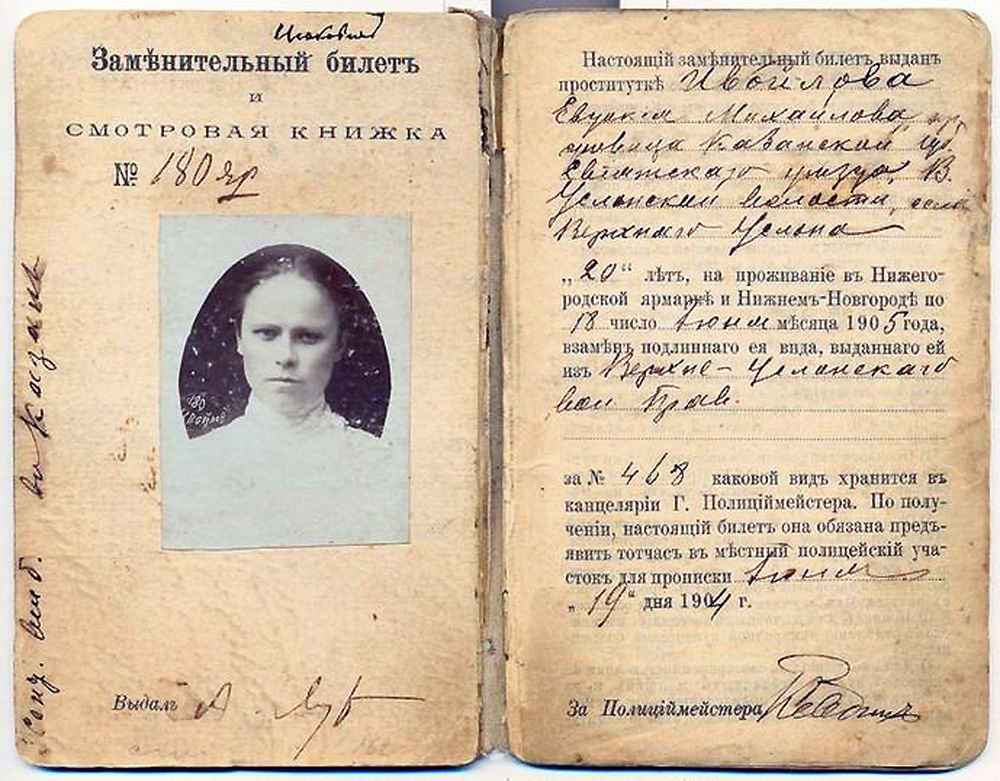 Замѣнительный билетъ
и
СМОТРОВАЯ КНИЖКА
№ 180 яр
180
въ Казань
Выдалъ А.
Настоящій замѣнительный билетъ выданъ
проституткѣ Ивойлова
Евдокія Михайлова, кр
Казанской губ
уѣзда, В.
Услонской волости, села
Верхняго Услона
„20“ лѣтъ, на проживаніе въ Нижего-
родской ярмаркѣ и Нижнемъ-Новгородѣ по
18 число Іюня мѣсяца 1905 года,
взамѣнъ подлиннаго ея вида, выданнаго ей
изъ Верхне-Услонскаго
вол Прав.
за № 468 каковой видъ хранится въ
канцеляріи Г. Полиціймейстера. По полу-
ченіи, настоящій билетъ она обязана предъ-
явить тотчасъ въ мѣстный полицейскій уча-
стокъ для прописки Іюня
„19“ дня 1904 г.
За Полиціймейстера